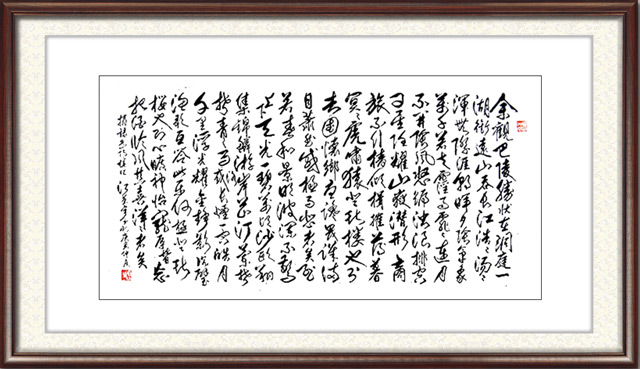 余觀巴陵勝狀在洞庭一
湖銜遠山吞長江浩浩湯湯
渾無際涯朝暉夕陰氣象
萬千若夫霪雨霏霏連月
不開陰風怒號濁浪排空
日星隱耀山岳潛形商
旅不行檣傾楫摧薄暮
冥冥虎嘯猿啼登樓也則有
去國懷鄉憂讒畏譏滿
目蕭然感極而悲者矣至
若春和景明波瀾不驚
上下天光一碧萬頃沙鷗翔
集錦鱗游泳岸芷汀蘭郁
郁青青而或長煙一空皓月
千里浮光耀金靜影沉璧
漁歌互答此樂何極登斯
樓也則有心曠神怡寵辱皆忘
把酒臨風其喜洋洋者矣